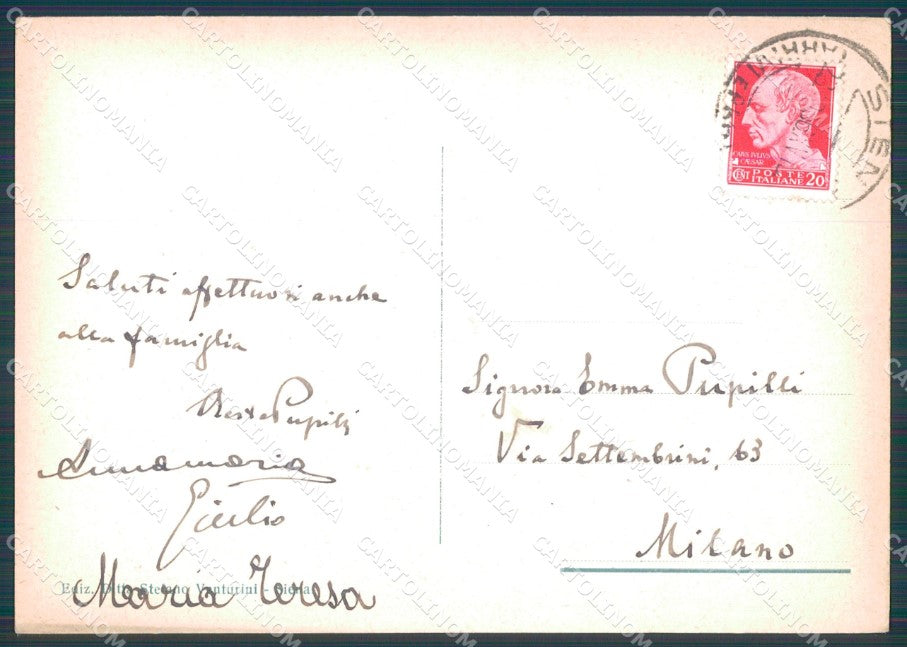 Saluti affettuosi anche
alla famiglia
Pupilli
Annamaria
Giulio
Maria Teresa
Ediz. Ditta Stefano Venturini - Siena
SIENA
FERROVIA
CAIUS IVLIVS
CAESAR
CENT POSTE ITALIANE 20
Signora Emma Pupilli
Via Settembrini, 63
Milano
CARTOLINOMANIA